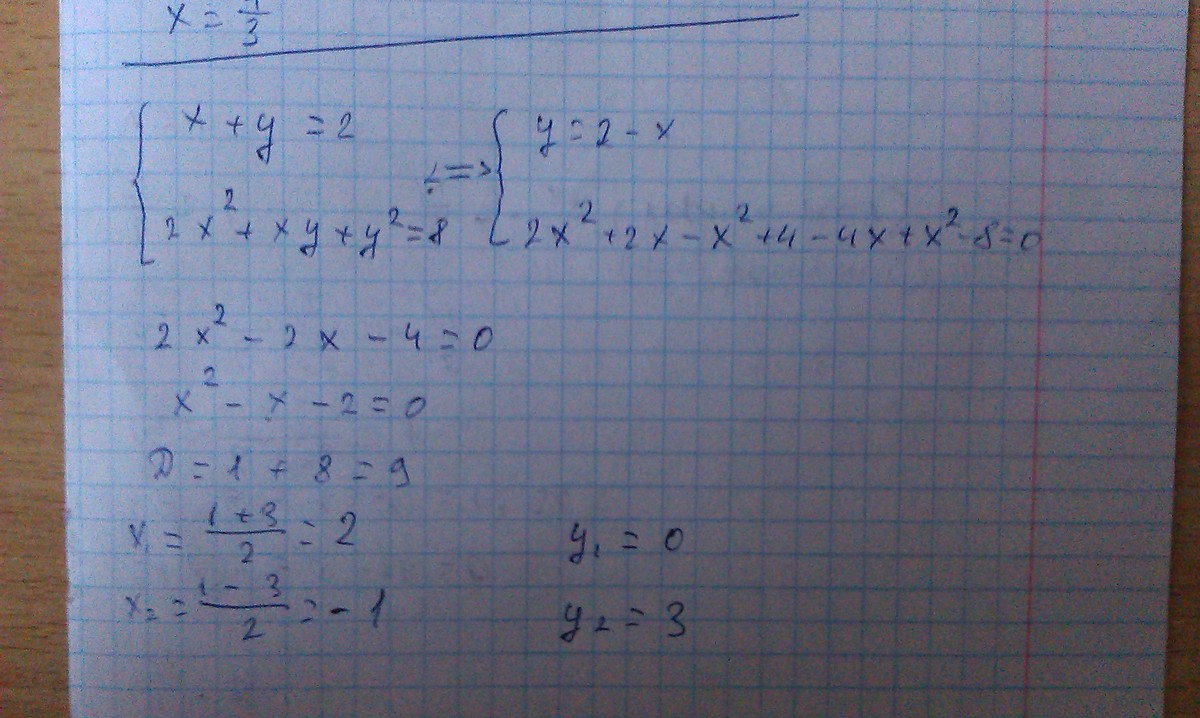 x = 1/3
{ x + y = 2 <=> { y = 2 - x
2x² + xy + y² = 8 2x² + 2x - x² + 4 - 4x + x² - 8 = 0
2x² - 2x - 4 = 0
x² - x - 2 = 0
D = 1 + 8 = 9
x₁ = (1 + 3)/2 = 2 y₁ = 0
x₂ = (1 - 3)/2 = -1 y₂ = 3